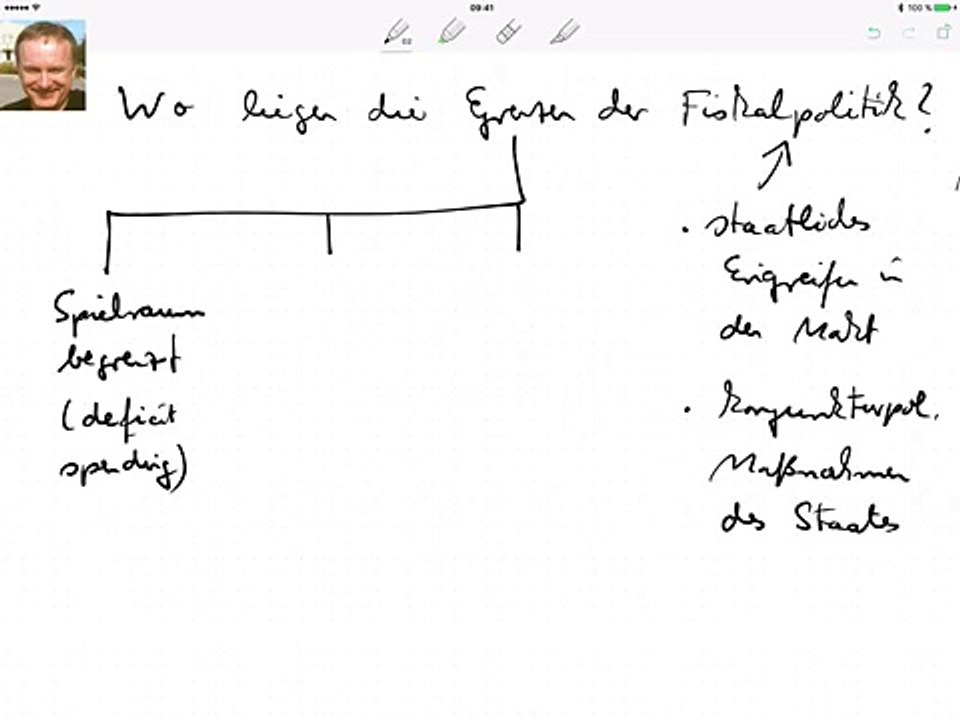 09:41
100 %
02
Wo liegen die Grenzen der Fiskalpolitik?
Spielraum
begrenzt
(deficit
spending)
• staatliches
Eingreifen in
den Markt
• konjunkturpol.
Maßnahmen
des Staates